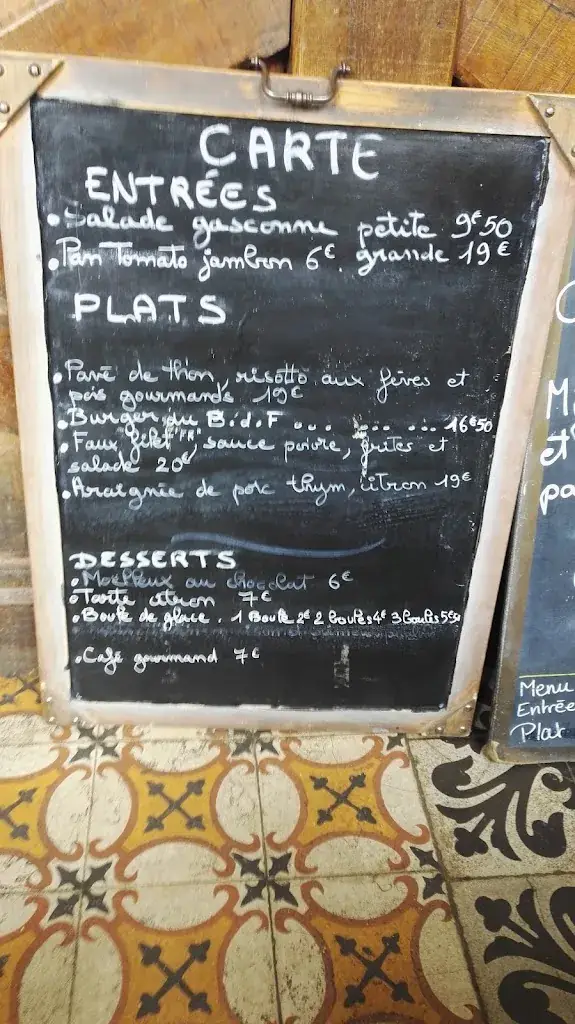 CARTE
ENTRÉES
• Salade gasconne petite 9€50
• Pan Tomato jambon 6€. grande 19€
PLATS
• Pavé de thon, risotto aux fèves et
pois gourmands 19€
• Burger du B.d.F ... ... ... 16€50
• Faux filet "FR", sauce poivre, frites et
salade 20€
• Araignée de porc thym, citron 19€
DESSERTS
• Moelleux au chocolat 6€
• Tarte citron 7€
• Boule de glace. 1 Boule 2€ 2 boules 4€ 3 boules 5€50
• Café gourmand 7€
et
Menu
Entrée
Plat